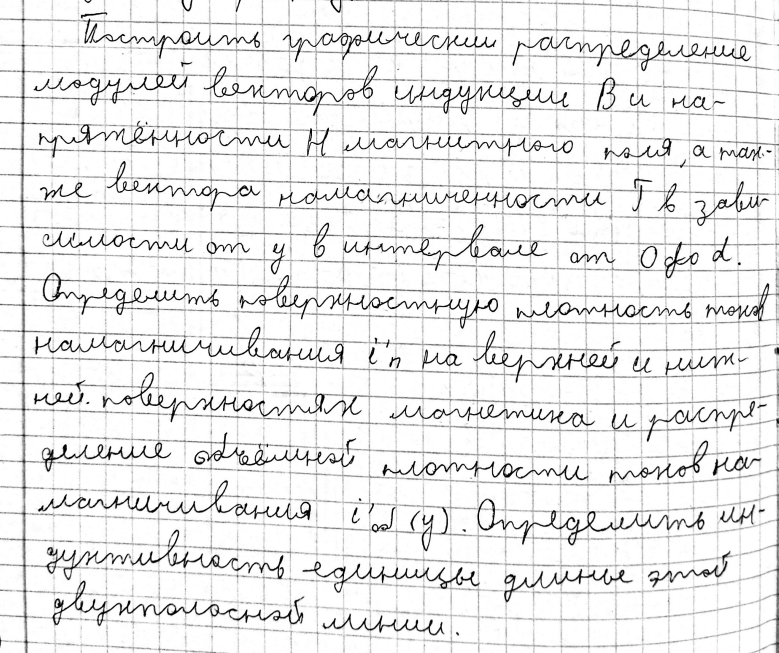 Построить графически распределение
модулей векторов индукции B и на-
пряжённости H магнитного поля, а так-
же вектора намагниченности J в зави-
симости от y в интервале от 0 до d.
Определить поверхностную плотность токов
намагничивания i'п на верхней и ниж-
ней поверхностях магнетика и распре-
деление объёмной плотности токов на-
магничивания i'об (y). Определить ин-
дуктивность единицы длины этой
двухполосной линии.